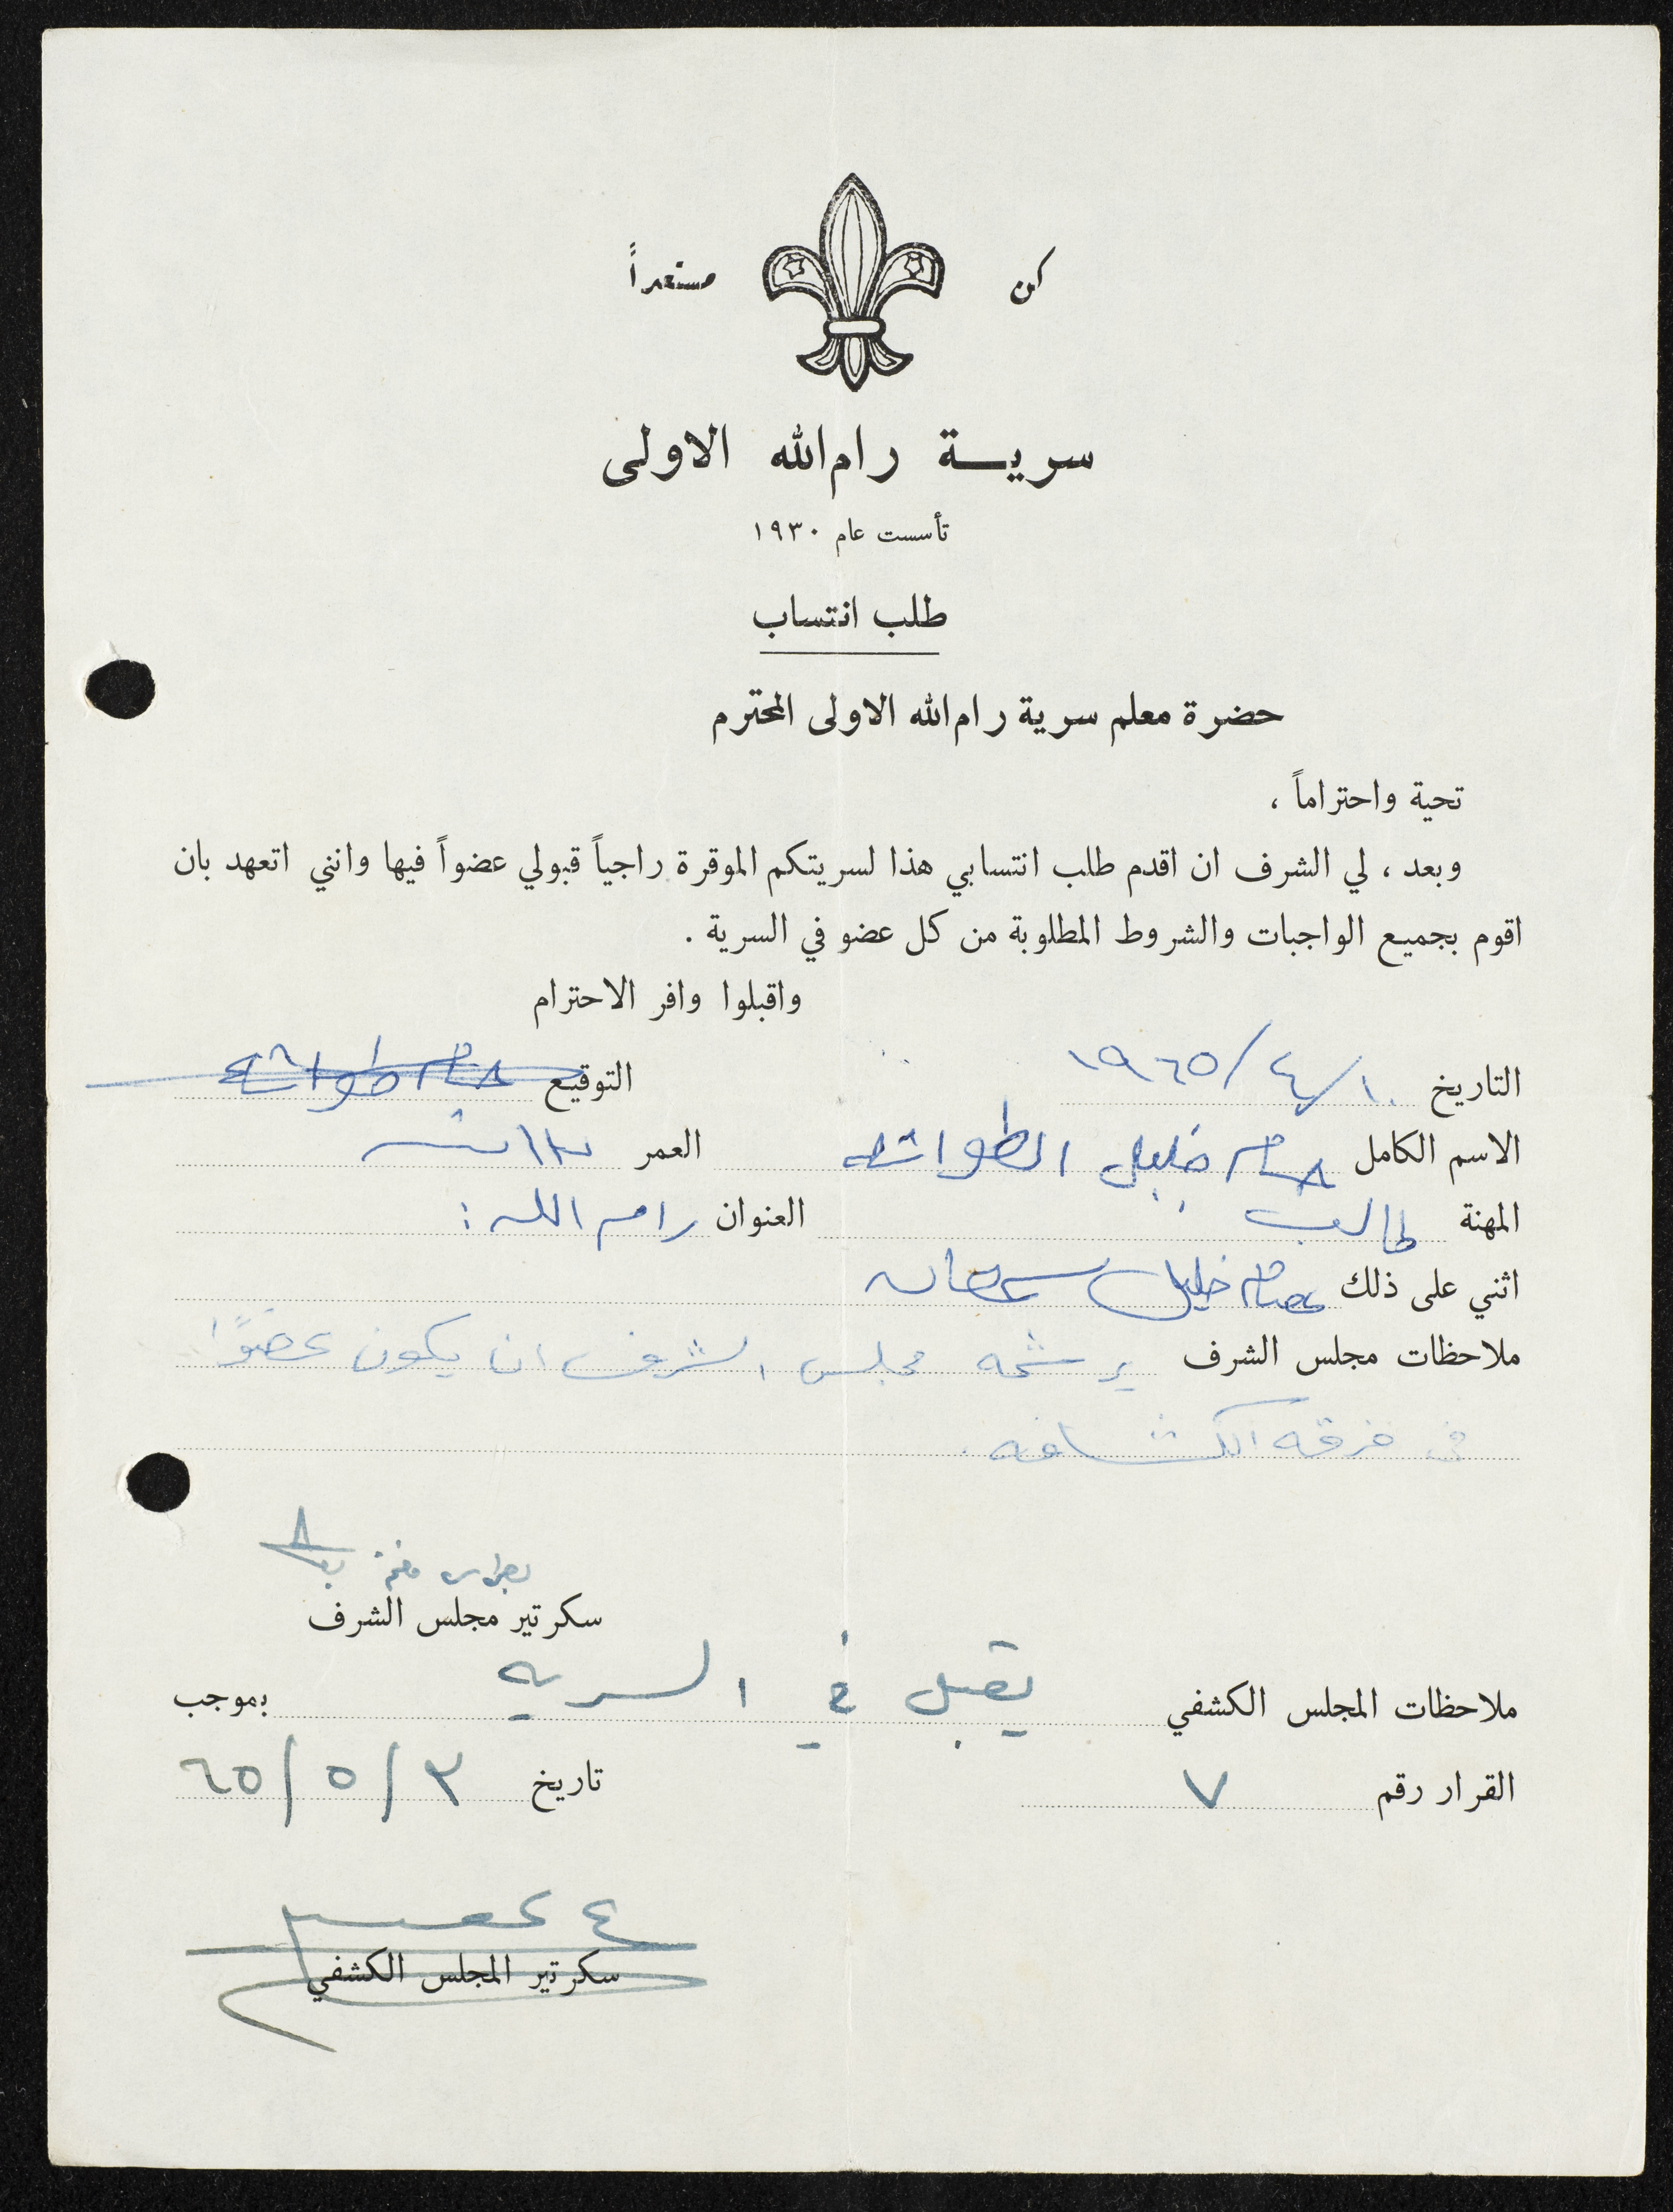 كن مستعداً
سرية رام الله الاولى
تأسست عام ١٩٣٠
طلب انتساب
حضرة معلم سرية رام الله الاولى المحترم
تحية واحتراماً ،
وبعد ، لي الشرف ان اقدم طلب انتسابي هذا لسريتكم الموقرة راجياً قبولي عضواً فيها وانني اتعهد بان
اقوم بجميع الواجبات والشروط المطلوبة من كل عضو في السرية .
واقبلوا وافر الاحترام
التاريخ ١٠/٤/١٩٦٥ التوقيع
الاسم الكامل خليل العمر
المهنة طالب العنوان رام الله :
اثني على ذلك عصام خليل سمعان
ملاحظات مجلس الشرف يرشحه مجلس الشرف ان يكون عضوًا
في فرقة الكشافه .
سكرتير مجلس الشرف
ملاحظات المجلس الكشفي يقبل في السريه بموجب
القرار رقم ٧ تاريخ ٣/٥/٦٥
سكرتير المجلس الكشفي